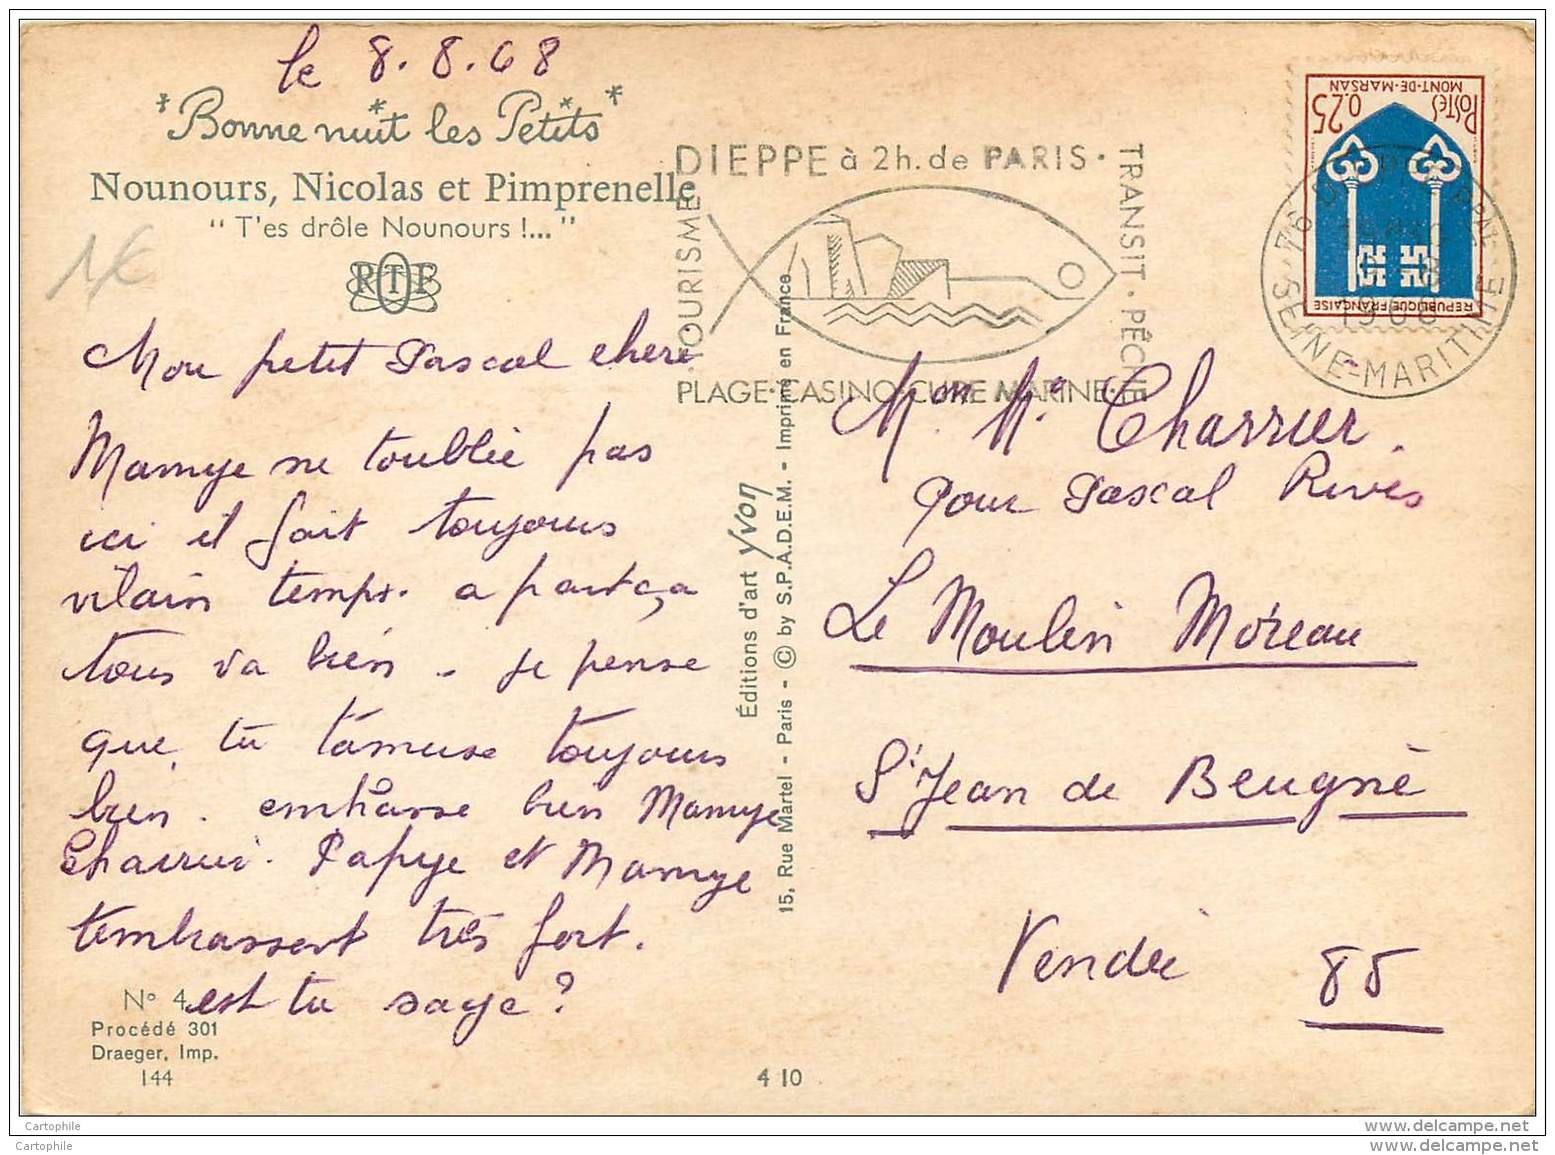 le 8.8.68
Bonne nuit les Petits
Nounours, Nicolas et Pimprenelle
" T'es drôle Nounours !... "
RTF
Mon petit Pascal cheri
Mamye ne toublie pas
ici il fait toujours
vilain temps. a part ça
tous va bien - je pense
que tu t'amuse toujours
bien. embrasse bien Mamye
Charrier. Papye et Mamye
tembrassent très fort.
est tu sage?
N° 4
Procédé 301
Draeger, Imp.
144
4 10
Éditions d'art Yvon
15, Rue Martel - Paris - © by S.P.A.D.E.M. - Imprimé en France
DIEPPE à 2h. de PARIS
TOURISME
TRANSIT · PÊCHE
PLAGE · CASINO · CURE MARINE
POSTES
0.25
MONT-DE-MARSAN
REPUBLIQUE FRANÇAISE
76
SEINE-MARITIME
Mon Mr Charrier.
pour Pascal Rivès
Le Moulin Moreau
St Jean de Beugnè
Vendée 85
Cartophile
www.delcampe.net
Cartophile
www.delcampe.net